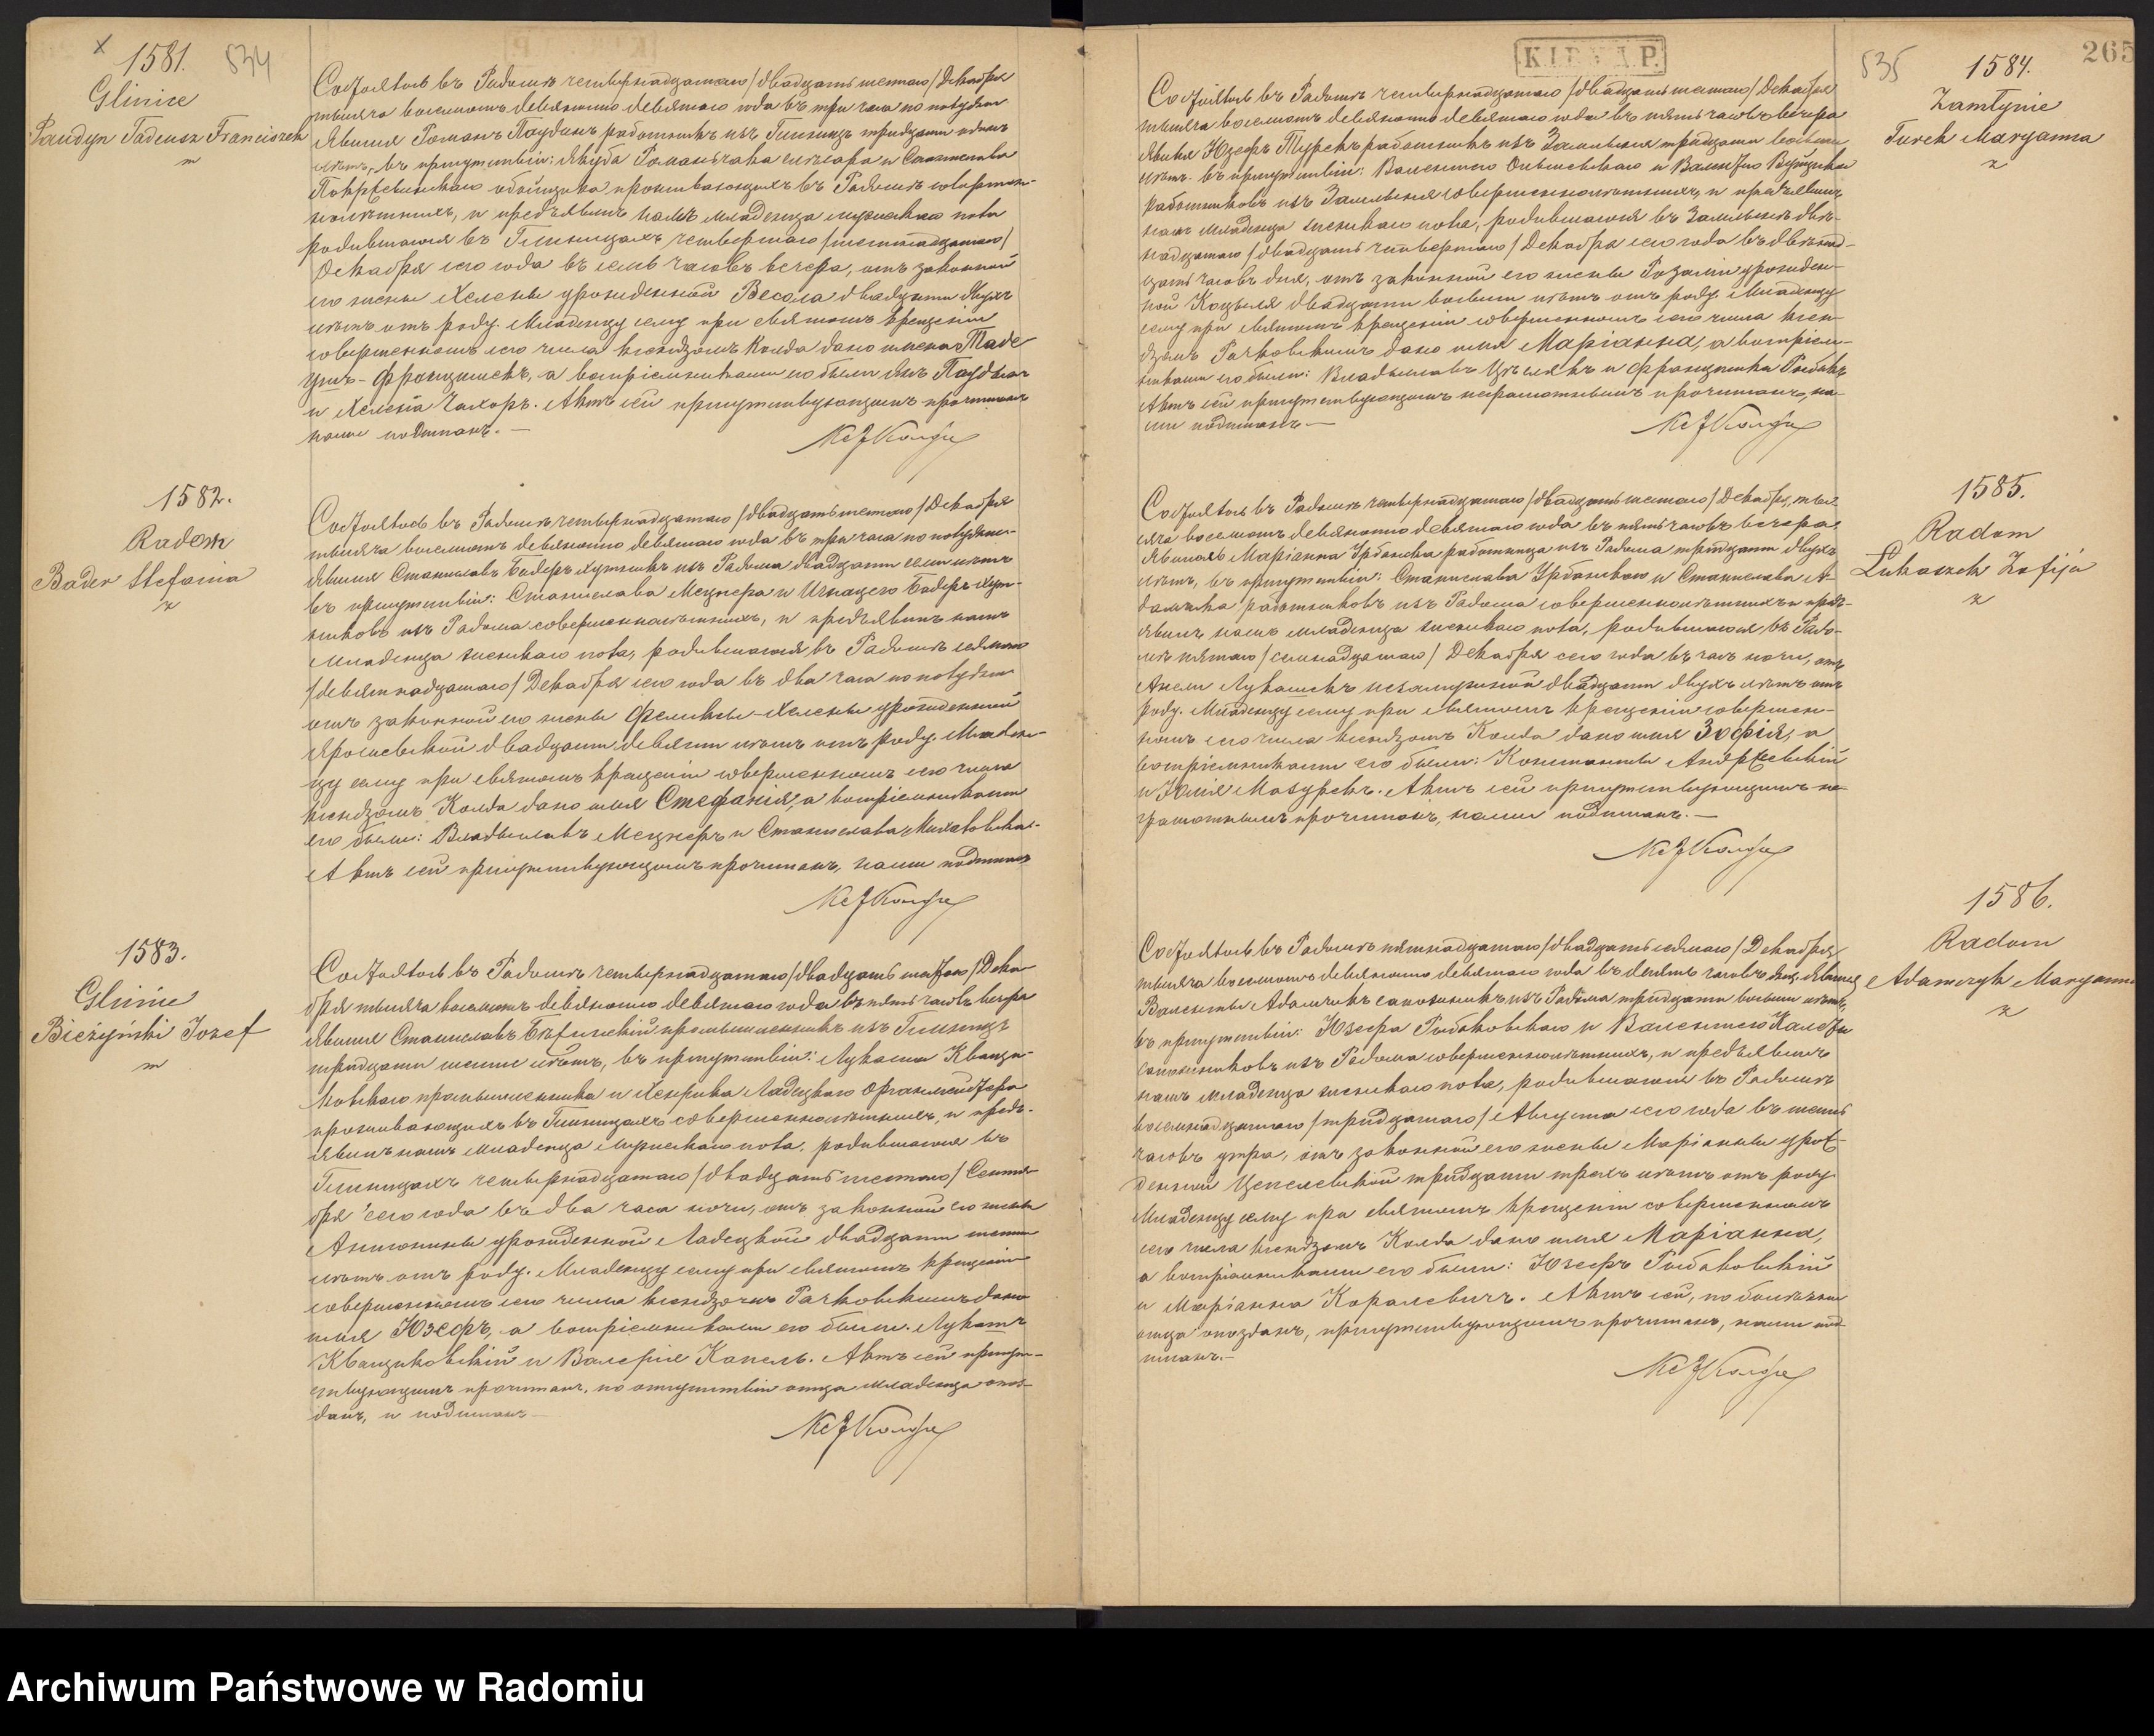 1581.
534
Glinice
Paudyn Tadeusz Franciszek
Состоялось въ Радомѣ четырнадцатаго /двадцать шестаго/ Декабря
тысяча восемьсотъ девяносто девятаго года въ три часа по полудни
Явился Романъ Паудынъ работникъ изъ Глинницъ тридцати
лѣтъ, въ присутствіи: Якуба
проживающихъ въ Радомѣ совершен-
нолѣтнихъ, и предъявилъ намъ младенца мужескаго пола
родившагося въ Глинницахъ четвертаго /шестнадцатаго/
Декабря сего года въ семь часовъ вечера, отъ законной
его жены Хелены урожденной Весола двадцати двухъ
лѣтъ отъ роду. Младенцу сему при святомъ крещеніи
совершенномъ сего числа ксендзомъ Колда дано имена Таде
ушъ-Францишекъ, а воспріемниками его были Янъ Паудынъ
и Хелена Чахоръ. Актъ сей присутствующимъ прочитанъ
нами подписанъ. —
Кс J Колда
1582.
Radom
Bader Stefania
z
Состоялось въ Радомѣ четырнадцатаго /двадцать шестаго/ Декабря
тысяча восемьсотъ девяносто девятаго года въ три часа по полудни
Явился Станиславъ Бадеръ изъ Радома двадцати семи лѣтъ
въ присутствіи: Станислава Мецнера и Игнацего Бадеръ
изъ Радома совершеннолѣтнихъ, и предъявилъ намъ
младенца женскаго пола, родившагося въ Радомѣ седьмаго
/девятнадцатаго/ Декабря сего года въ два часа по полудни
отъ законной его жены Феликсы-Хелены урожденной
Ярошевской двадцати девяти лѣтъ отъ роду. Младен-
цу сему при святомъ крещеніи совершенномъ сего числа
ксендзомъ Колда дано имя Стефанія, а воспріемниками
его были: Владыславъ Мецнеръ и Станислава
Актъ сей присутствующимъ прочитанъ, нами подписанъ
Кс J Колда
1583.
Glinice
Bieżyński Jozef
m
Состоялось въ Радомѣ четырнадцатаго /двадцать шестаго/ Дека
бря тысяча восемьсотъ девяносто девятаго года въ пять часовъ вечера
Явился Станиславъ промышленникъ изъ Глинницъ
тридцати шести лѣтъ, въ присутствіи: Лукаша Кващи-
ковскаго промышленника и Хенрика Ладецкаго
проживающихъ въ Глинницахъ совершеннолѣтнихъ, и предъ-
явилъ намъ младенца мужескаго пола, родившагося въ
Глинницахъ четырнадцатаго /двадцать шестаго/ Сентя
бря сего года въ два часа ночи, отъ законной его жены
Антонины урожденной Ладецкой двадцати шести
лѣтъ отъ роду. Младенцу сему при святомъ крещеніи
совершенномъ сего числа ксендзомъ Рачковскимъ дано
имя Юзефъ, а воспріемниками его были: Лукашъ
Кващиковскій и Валерія Капель. Актъ сей присут-
ствующимъ прочитанъ, по отсутствіи отца младенца опоз-
данъ, и подписанъ —
Кс J Колда
265
535
1584.
Zamłynie
Turek Maryanna
z
Состоялось въ Радомѣ четырнадцатаго /двадцать шестаго/ Декабря
тысяча восемьсотъ девяносто девятаго года въ пять часовъ вечера
Явился Юзефъ Турекъ работникъ изъ Замлынья тридцати восьми
лѣтъ, въ присутствіи: Валентего Ольшевскаго и
работниковъ изъ Замлынья совершеннолѣтнихъ, и предъявилъ
намъ младенца женскаго пола, родившагося въ Замлыньѣ двѣ-
надцатаго /двадцать четвертаго/ Декабря сего года въ двѣнад-
цать часовъ дня, отъ законной его жены Розаліи урожден-
ной Коцыля двадцати восьми лѣтъ отъ роду. Младенцу
сему при святомъ крещеніи совершенномъ сего числа ксен-
дзомъ Рачковскимъ дано имя Маріанна, а воспріем-
никами его были: Владыславъ Цѣслякъ и Францишка Рыбакъ
Актъ сей присутствующимъ неграмотнымъ прочитанъ, на-
ми подписанъ —
Кс J Колда
1585.
Radom
Łukaszek Zofija
z
Состоялось въ Радомѣ четырнадцатаго /двадцать шестаго/ Декабря, тыся
сяча восемьсотъ девяносто девятаго года въ пять часовъ вечера.
Явилась Маріанна Урбанска работница изъ Радома тридцати двухъ
лѣтъ, въ присутствіи: Станислава Урбанскаго и Станислава А-
дамчика работниковъ изъ Радома совершеннолѣтнихъ и предъ-
явила намъ младенца женскаго пола, родившагося въ Радо-
мѣ пятаго /семнадцатаго/ Декабря сего года въ часъ ночи, отъ
Анели Лукашекъ незамужной двадцати двухъ лѣтъ отъ
роду. Младенцу сему при святомъ крещеніи совершен-
номъ сего числа ксендзомъ Колда дано имя Зофія, а
воспріемниками его были: Константы Андржеевскій
и Юлія Мазурекъ. Актъ сей присутствующимъ не-
грамотнымъ прочитанъ, нами подписанъ. —
Кс J Колда
1586.
Radom
Adamczyk Maryanna
z
Состоялось въ Радомѣ пятнадцатаго /двадцать седьмаго/ Декабря
тысяча восемьсотъ девяносто девятаго года въ девять часовъ дня. Явился
Валенты Адамчикъ сапожникъ изъ Радома тридцати восьми лѣтъ,
въ присутствіи: Юзефа Рыбаковскаго и Валентего
сапожниковъ изъ Радома совершеннолѣтнихъ, и предъявилъ
намъ младенца женскаго пола, родившагося въ Радомѣ
восемнадцатаго /тридцатаго/ Августа сего года въ шесть
часовъ утра, отъ законной его жены Маріанны урож
денной Цепелевской тридцати трехъ лѣтъ отъ роду.
Младенцу сему при святомъ крещеніи совершенномъ
сего числа ксендзомъ Колда дано имя Маріанна,
а воспріемниками его были: Юзефъ Рыбаковскій
и Маріанна Каралевичъ. Актъ сей, по болѣзни
отца опозданъ, присутствующимъ прочитанъ, нами под-
писанъ. —
Кс J Колда
Archiwum Państwowe w Radomiu